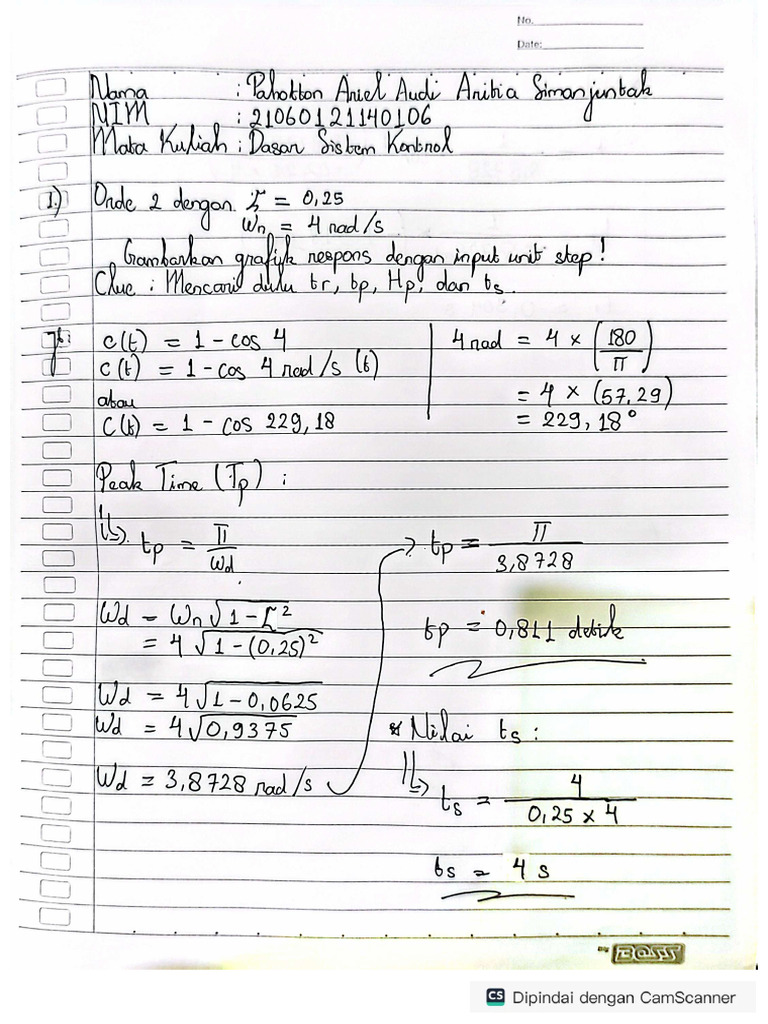 No.
Date:
Nama : Pahotton Ariel Audi Aritia Simanjuntak
NIM : 21060121140106
Mata Kuliah : Dasar Sistem Kontrol
1.) Orde 2 dengan ξ = 0,25
ωn = 4 rad/s
Gambarkan grafik respons dengan input unit step!
Clue : Mencari dulu tr, tp, Mp, dan ts.
Jb:
c(t) = 1 - cos 4
c(t) = 1 - cos 4 rad/s (t)
atau
c(t) = 1 - cos 229,18
4 rad = 4 × (180/π)
= 4 × (57,29)
= 229,18°
Peak Time (Tp) :
tp = π/ωd
ωd = ωn √1-ξ²
= 4 √1-(0,25)²
ωd = 4√1-0,0625
ωd = 4√0,9375
ωd = 3,8728 rad/s
tp = π/3,8728
tp = 0,811 detik
* Nilai ts :
ts = 4/0,25 × 4
ts = 4 s
BOSS
CS Dipindai dengan CamScanner